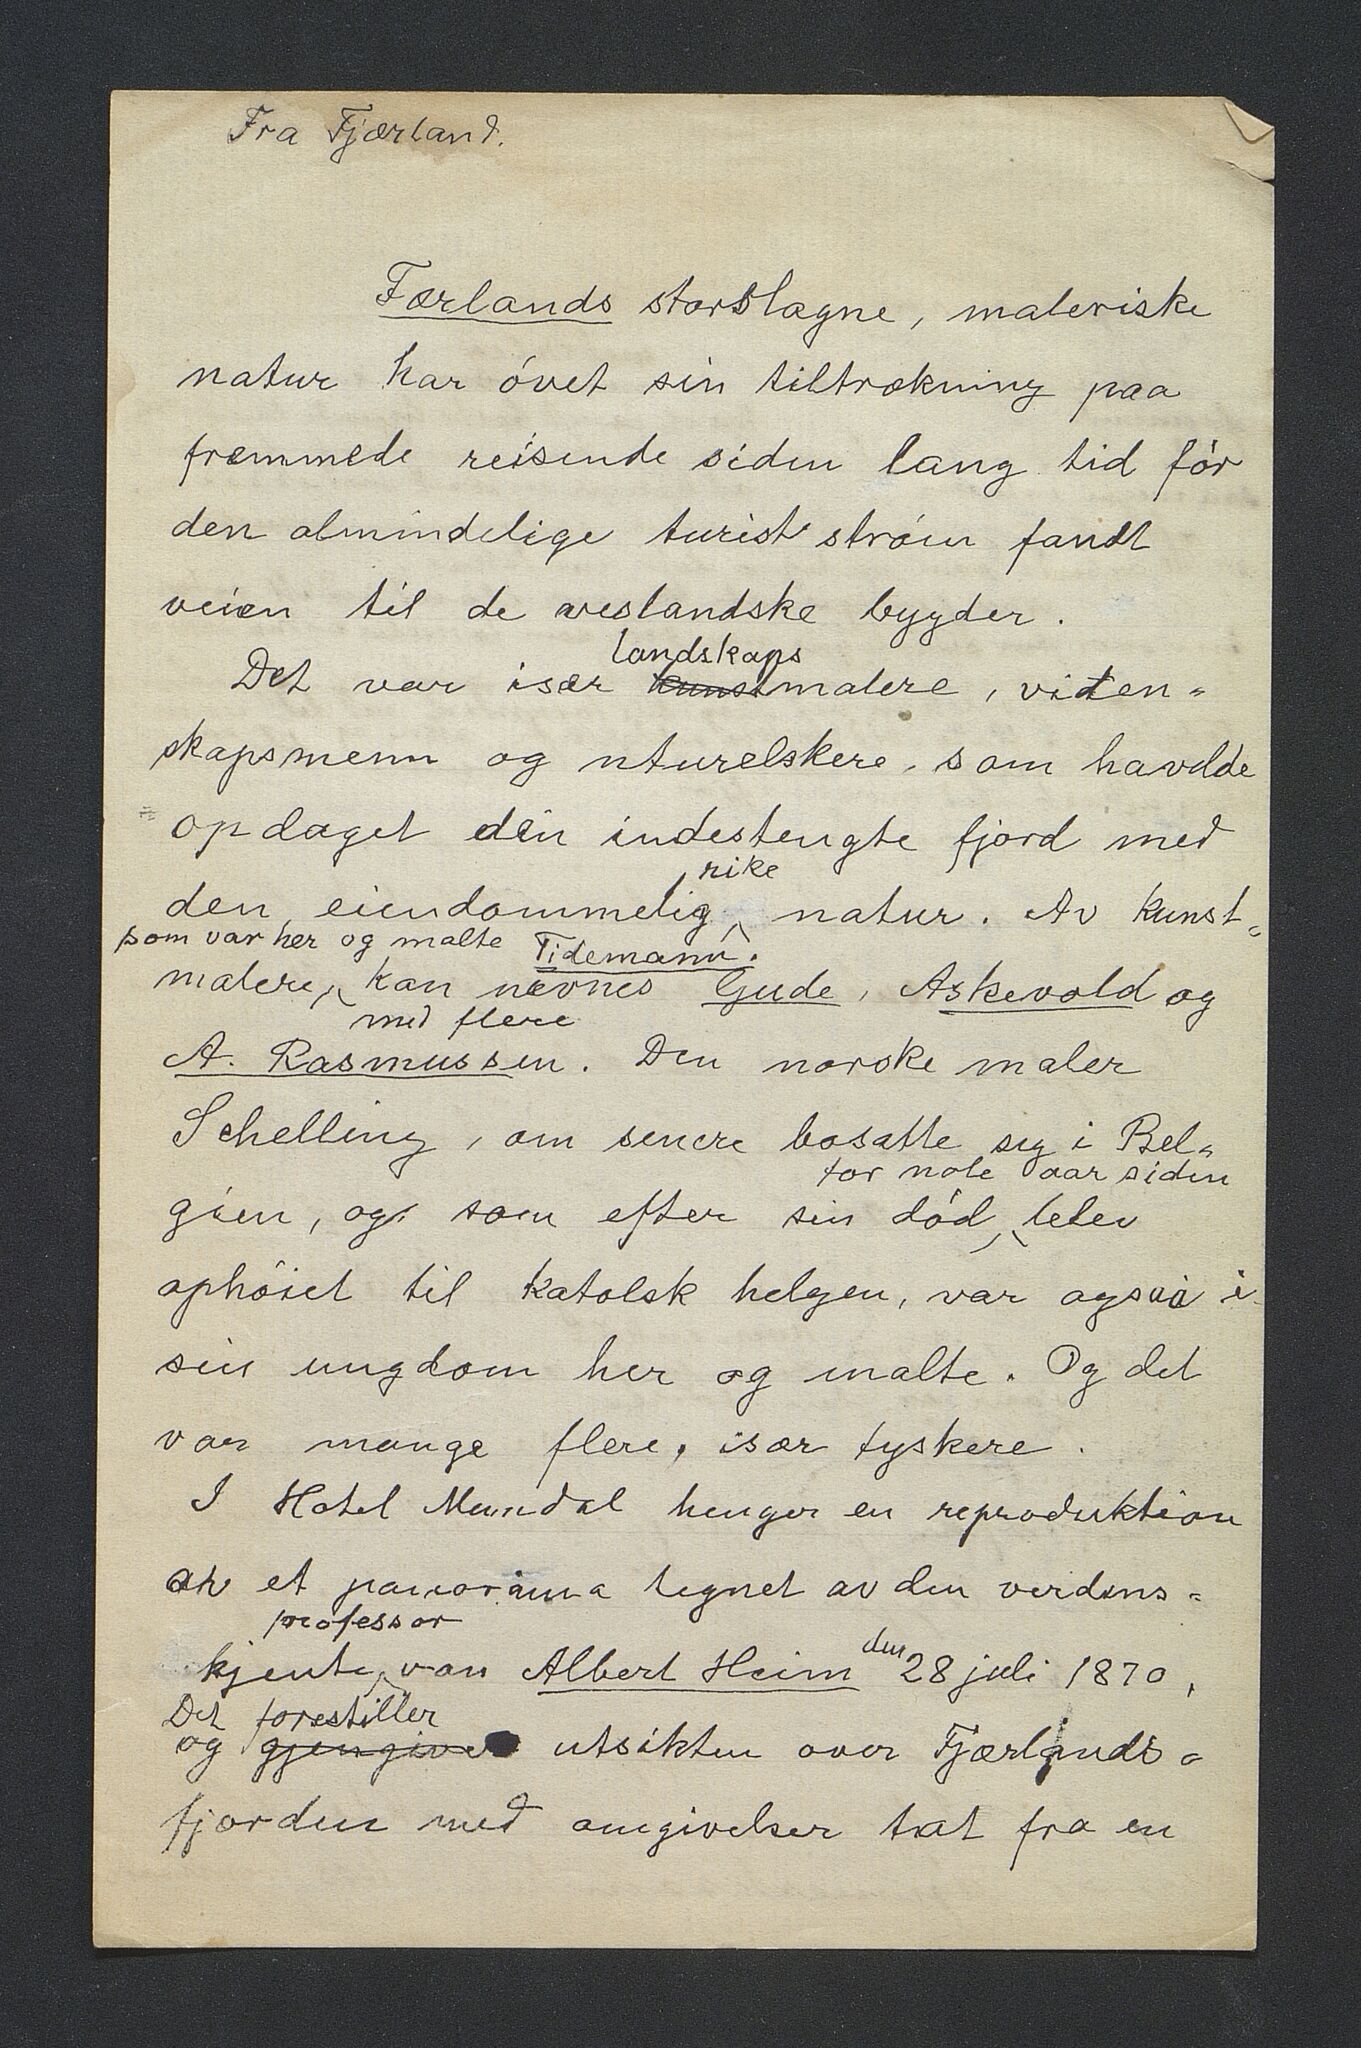 Fra Fjærland.
Færlands storslagne, maleriske
natur har óvet sin tiltrækning paa
fremmede reisende siden lang tid fór
den almindelige turist stróm fandt
veien til de veslandske bygder.
landskaps
Det var især kunstmalere, viten-
skapsmenn og nturelskere, som havdde
opdaget den indestengte fjord med
rike
den eiendommelig natur. Av kunst-
som var her og malte Tidemann.
malere, kan nevnes Gude, Askevold og
med flere
A. Rasmussen. Den norske maler
Schelling, om senere bosatte sig i Bel-
for nole aar siden
gien, og som efter sin dód, blev
ophöiet til katolsk helgen, var ogsaa i
sin ungdom her og malte. Og det
var mange flere, især tyskere.
I Hotel Mundal henger en reproduktion
av et panorama tegnet av den verdens-
professor
kjente, van Albert Heim den 28 juli 1870,
Det forestiller
og gjengiver utsikten over Fjærlands-
fjorden med omgivelser tat fra en